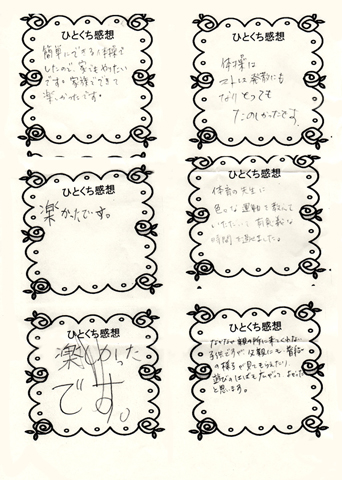 ひとくち感想
簡単にできる体操で
したので、家でもやりたい
です。家族でできて
楽しかったです。
ひとくち感想
体操は
ストレス発散にも
なりとっても
たのしかったです。
ひとくち感想
楽しかったです。
ひとくち感想
体育の先生に
色々な運動を教えて
いただいて有意義な
時間を過ごせました。
ひとくち感想
楽しかった
です。
ひとくち感想
なかなか親の所に来てくれない
子供ですが
の様子が見てもらえたり
遊びの
と思います。